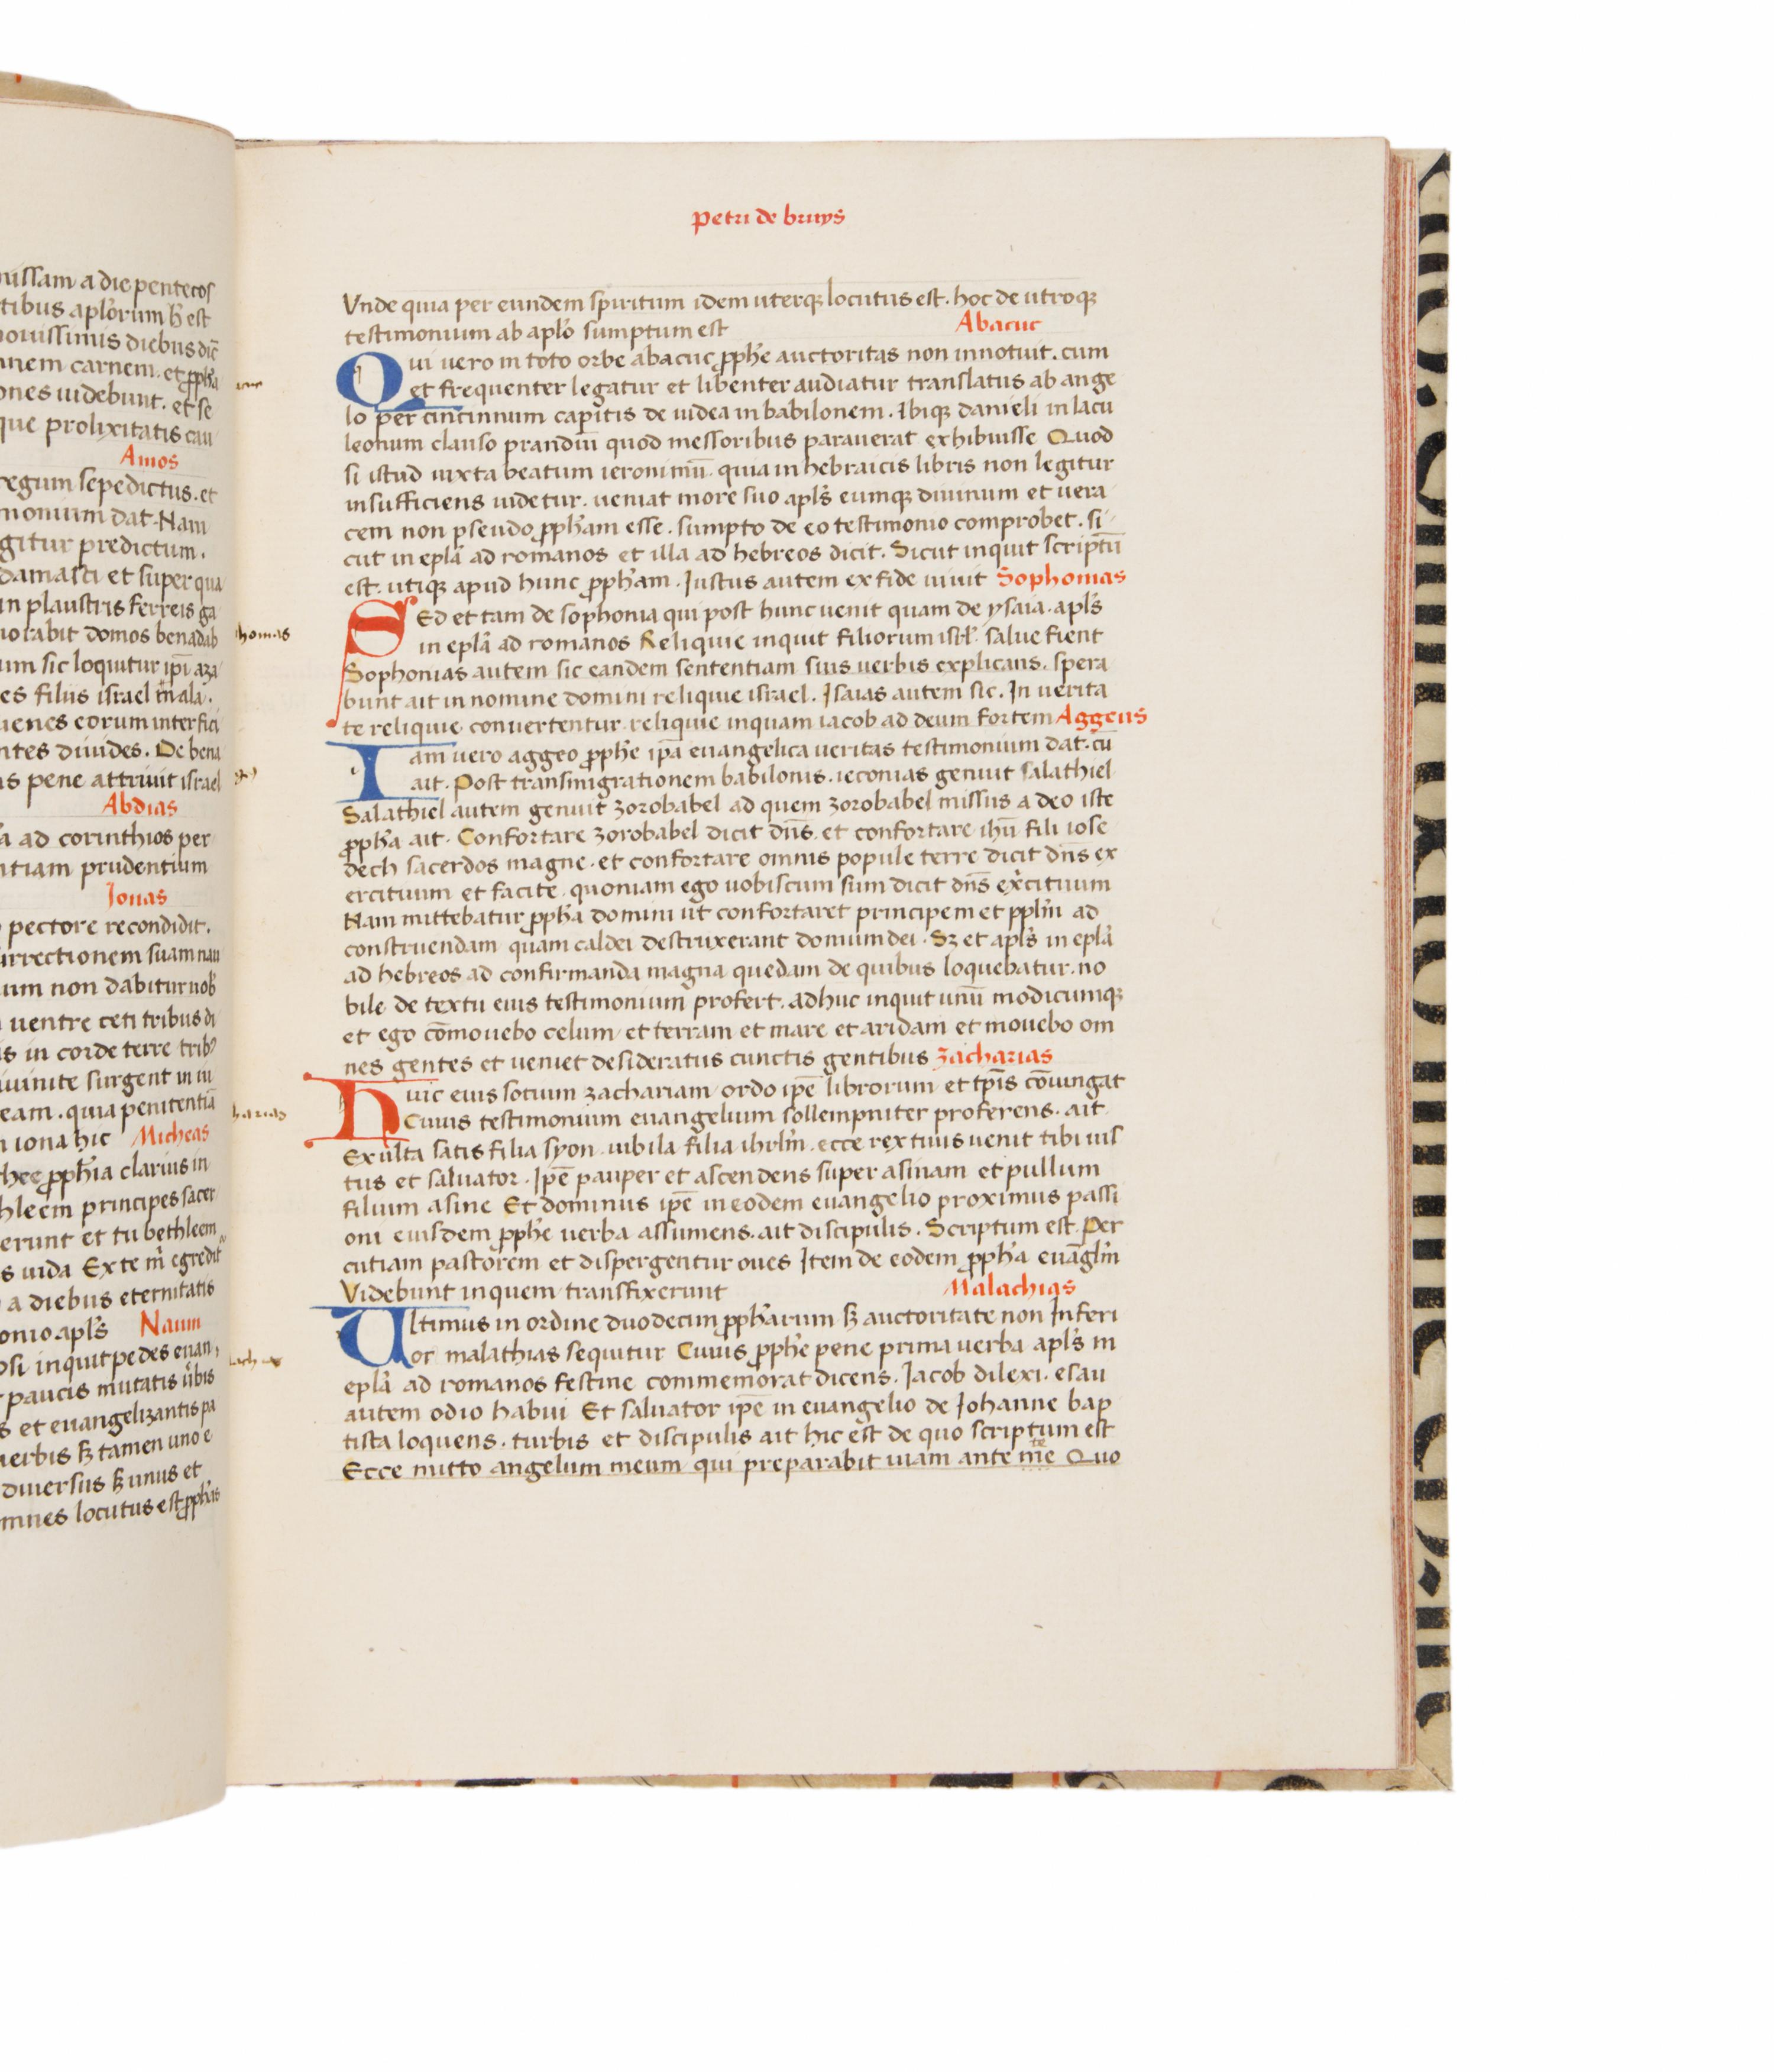 uissam a die pentecos
tibus aplorum h est
nouissimis diebus dic
mnem carnem. et ppha
ones uidebunt. et se
que prolixitatis cau
Amos
regum sepedictus. et
monium dat. Nam
gitur predictum.
damasci et super qua
in plaustris ferreis ga
uorabit domos benadab
um sic loquitur ipi aza
es filiis israel mala.
uenes eorum interfici
ntes diuides. De bena
as pene attriuit israel
Abdias
a ad corinthios per
ntiam prudentium
Jonas
pectore recondidit.
urrectionem suam nan
um non dabitur nob
uentre ceti tribus di
is in corde terre trib
iuinite surgent in iu
eam. quia penitentia
n iona hic Micheas
hec pphia clarius in
hleem principes sacer
erunt et tu bethleem
s iuda Ex te m egredit
a diebus eternitatis
onio apls Naum
osi inquit pedes euan
paucis mutatis ubis
s et euangelizantis pa
uerbis sz tamen uno e
diuersus sz unus et
mnes locutus est pphas
petri de bruys
Vnde quia per eundem spiritum idem uterqz locutus est. hoc de utroqz
testimonium ab aplo sumptum est Abacuc
Qui uero in toto orbe abacuc pphe auctoritas non innotuit. cum
et frequenter legatur et libenter audiatur translatus ab ange
lo per cincinnum capitis de iudea in babilonem. Ibiqz danieli in lacu
leonum clauso prandiū quod messoribus parauerat exhibuisse Quod
si istud iuxta beatum ieronimū. quia in hebraicis libris non legitur
insufficiens uidetur. ueniat more suo apls eumqz diuinum et uera
cem non pseudo ppham esse. sumpto de eo testimonio comprobet. si
cut in epla ad romanos et illa ad hebreos dicit. Sicut inquit scriptū
est. utiqz apud hunc ppham. Justus autem ex fide uiuit Sophonias
SEd et tam de sophonia qui post hunc uenit quam de ysaia. apls
in epla ad romanos Reliquie inquit filiorum isrl. salue fient
Sophonias autem sic eandem sententiam suis uerbis explicans. spera
bunt ait in nomine domini reliquie israel. Isaias autem sic. In uerita
te reliquie conuertentur. reliquie inquam iacob ad deum fortem Aggeus
Iam uero aggeo pphe ipa euangelica ueritas testimonium dat. cū
ait. Post transmigrationem babilonis. ieconias genuit salathiel
Salathiel autem genuit zorobabel ad quem zorobabel missus a deo iste
ppha ait. Confortare zorobabel dicit dns. et confortare ihū fili iose
dech sacerdos magne. et confortare omnis popule terre dicit dns ex
ercituum et facite. quoniam ego uobiscum sum dicit dns excituum
Nam mittebatur ppha domini ut confortaret principem et pplm ad
construendam quam caldei destruxerant domum dei. Sz et apls in epla
ad hebreos ad confirmanda magna quedam de quibus loquebatur. no
bile de textu eius testimonium profert. adhuc inquit unū modicumqz
et ego cōmouebo celum et terram et mare et aridam et mouebo om
nes gentes et ueniet desideratus cunctis gentibus Zacharias
Huic eius sotium zachariam ordo ipe librorum et tpis cōiungat
Cuius testimonium euangelium sollempniter proferens. ait
Exulta satis filia syon. iubila filia ihrlm. ecce rex tuus uenit tibi ius
tus et saluator. Ipe pauper et ascendens super asinam et pullum
filium asine Et dominus ipe in eodem euangelio proximus passi
oni eiusdem pphe uerba assumens. ait discipulis. Scriptum est. Per
cutiam pastorem et dispergentur oues Item de eodem ppha euāglm
Videbunt in quem transfixerunt Malachias
Ultimus in ordine duodecim ppharum sz auctoritate non Inferi
or malathias sequitur Cuius pphe pene prima uerba apls in
epla ad romanos festine commemorat dicens. Jacob dilexi. esau
autem odio habui Et saluator ipe in euangelio de Johanne bap
tista loquens. turbis et discipulis ait hic est de quo scriptum est
Ecce mitto angelum meum qui preparabit uiam ante me te Quo